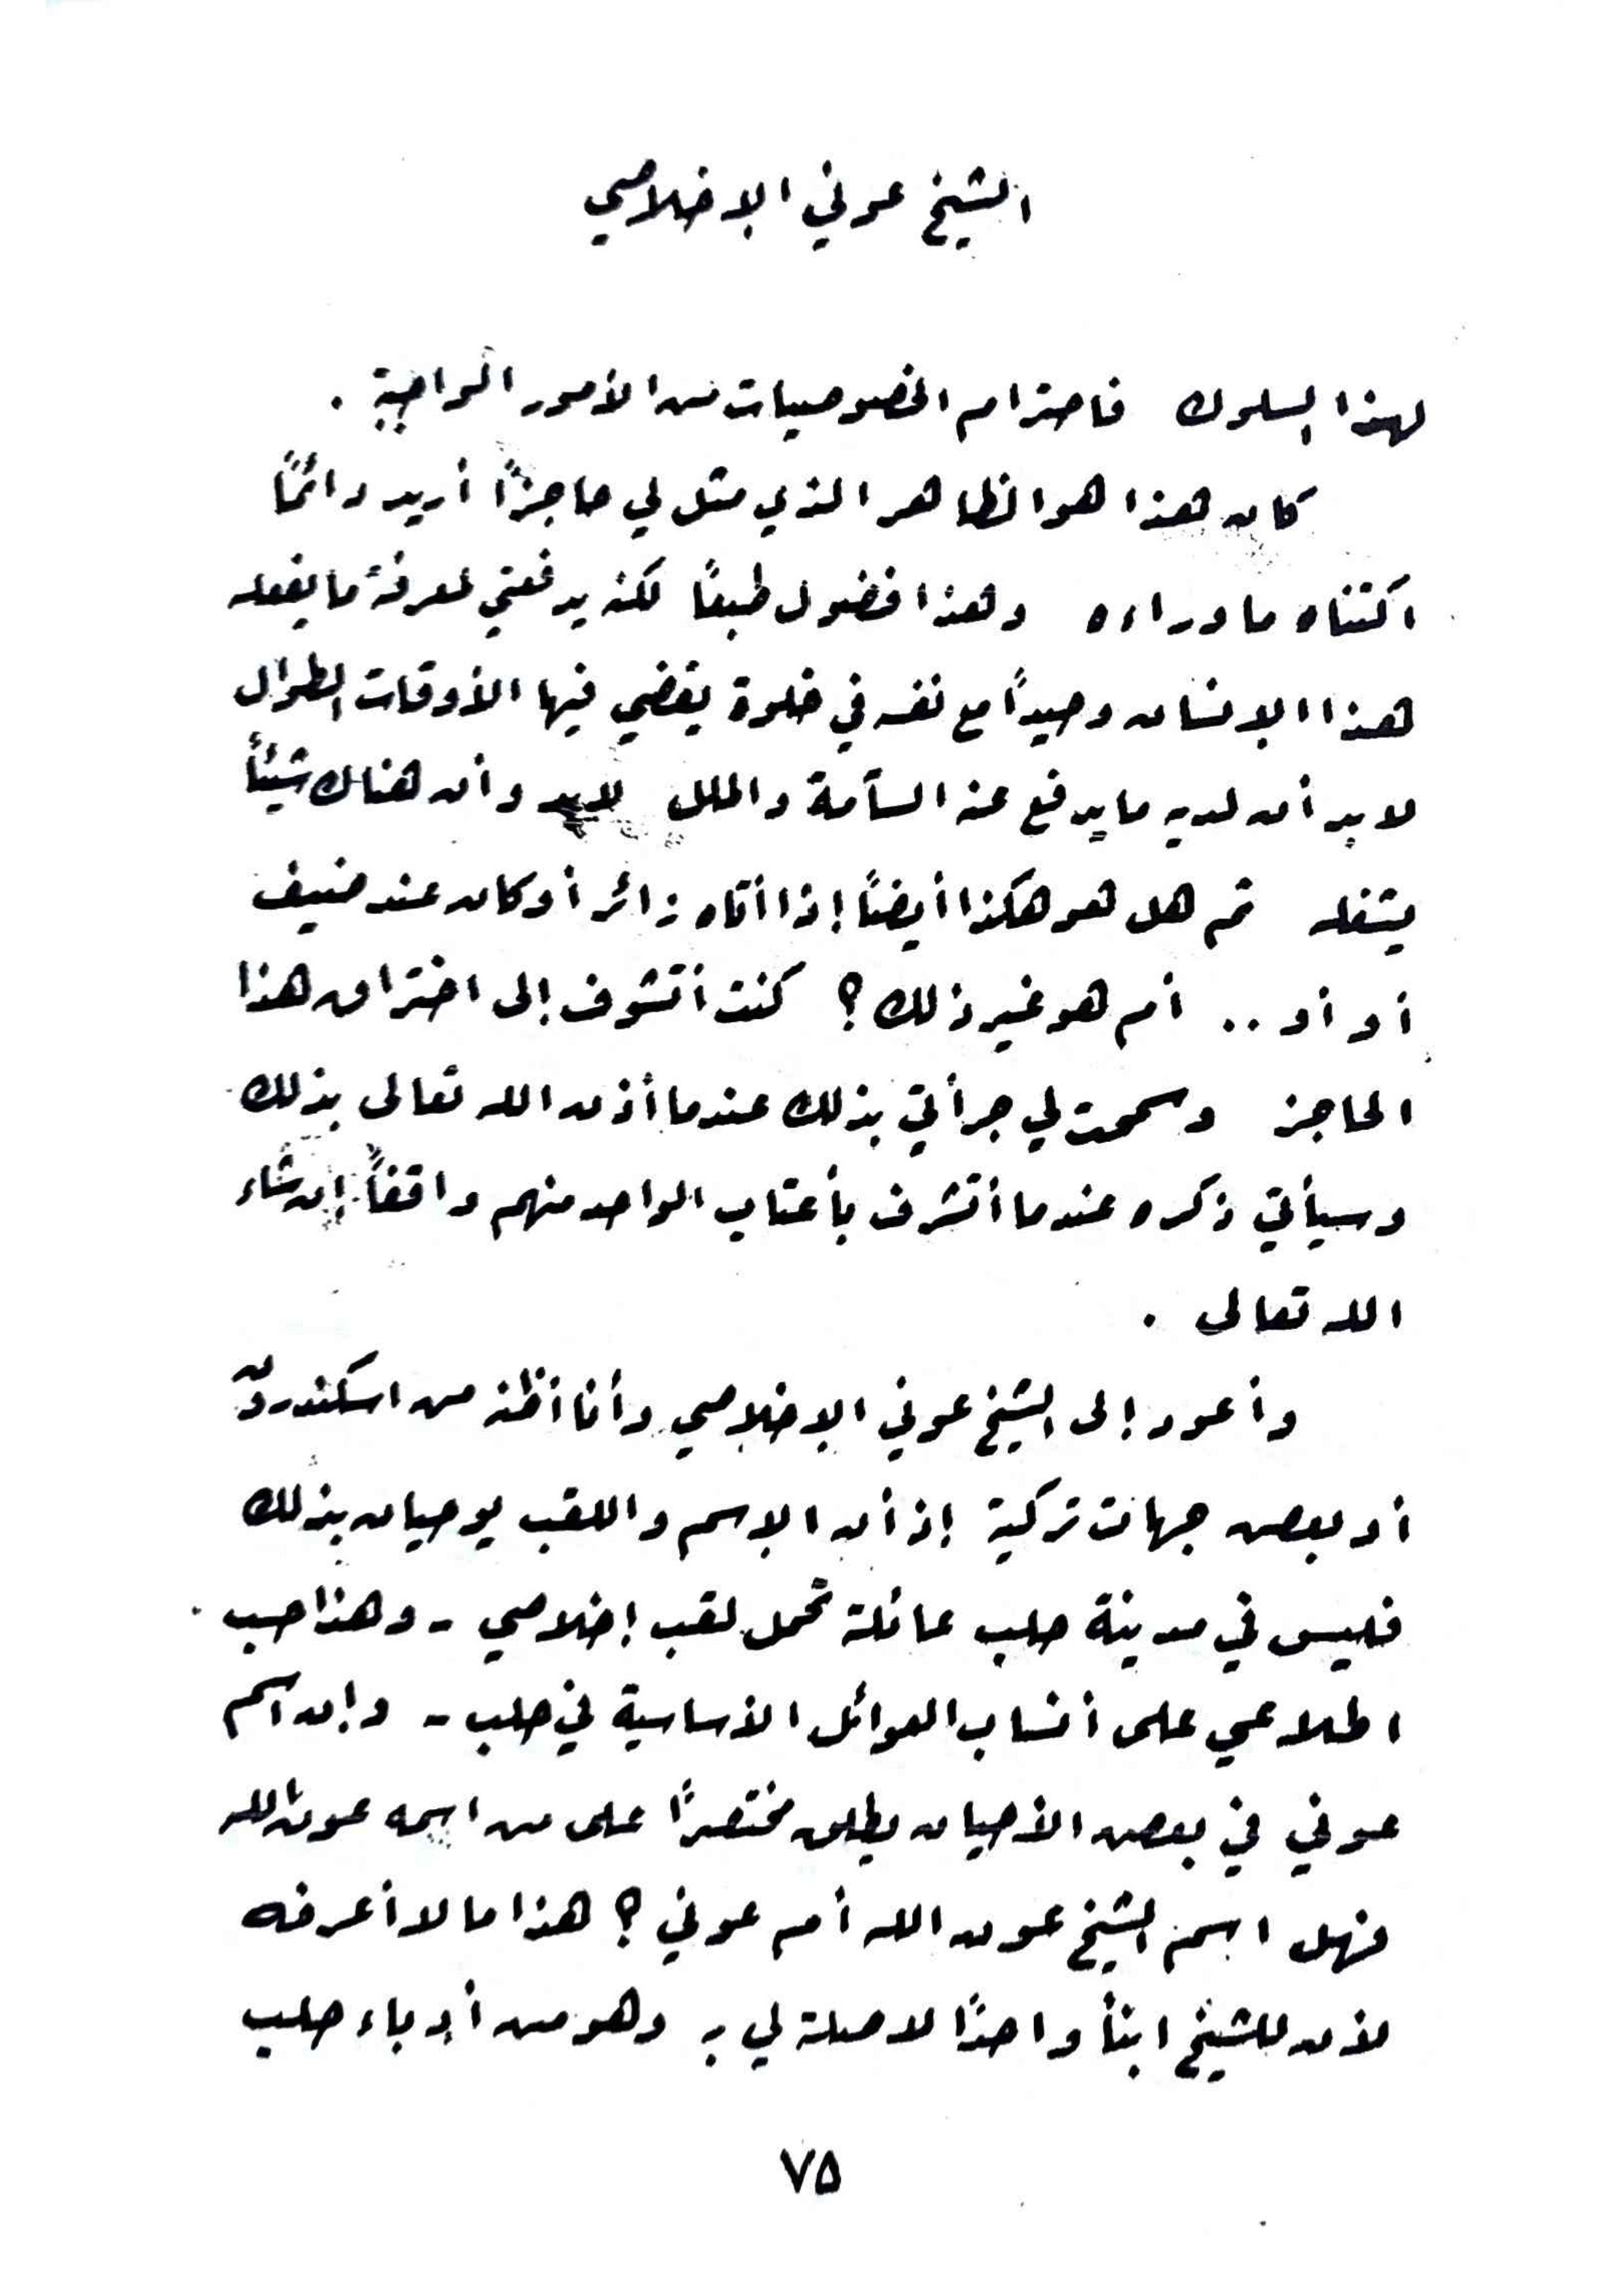 الشيخ عوني الإخلاصي
لهذا السلوك فاحترام الخصوصيات من الأمور الواجبة .
كان هذا هو الظاهر الذي مثل لي حاجزاً أريد دائماً
اكتناه ما وراءه وهذا فضول طبعاً لكنه يدفعني لمعرفة ما يفعله
هذا الإنسان وحيداً مع نفسه في خلوة يقضي فيها الأوقات الطوال
لا بد أن لديه ما يدفع عنه السآمة والملل لابد وأن هناك شيئاً
يشغله ثم هل هو هكذا أيضاً إذا أتاه زائر أو كان عنده ضيف
أو أو .. أم هو غير ذلك ؟ كنت أتشوف إلى اختراق هذا
الحاجز وسمحت لي جرأتي بذلك عندما أذن الله تعالى بذلك
وسيأتي ذكره عندما أتشرف بأعتاب الواحد منهم واقفاً إن شاء
الله تعالى .
وأعود إلى الشيخ عوني الإخلاصي وأنا أظنه من اسكندرون
أو بعض جهات تركية إذ أن الإسم واللقب يوحيان بذلك
فليس في مدينة حلب عائلة تحمل لقب إخلاصي - وهذا حسب
اطلاعي على أنساب العوائل الأساسية في حلب - وإن اسم
عوني في بعض الأحيان يطلق مختصراً على من اسمه عون الله
فهل اسم الشيخ عون الله أم عوني ؟ هذا ما لا أعرفه
لأن للشيخ ابناً واحداً لا صلة لي به وهو من أدباء حلب
٧٥